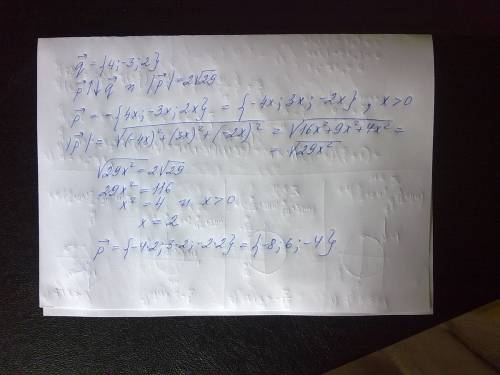 q⃗ = {4; -3; 2}
p⃗ ↑↓ q⃗ и |p⃗| = 2√29
p⃗ = -{4x; -3x; 2x} = {-4x; 3x; -2x}, x>0
|p⃗| = √((-4x)²+(3x)²+(-2x)²) = √(16x²+9x²+4x²) =
= √(29x²)
√(29x²) = 2√29
29x² = 116
x² = 4 и x>0
x = 2
p⃗ = {-4·2; 3·2; -2·2} = {-8; 6; -4}